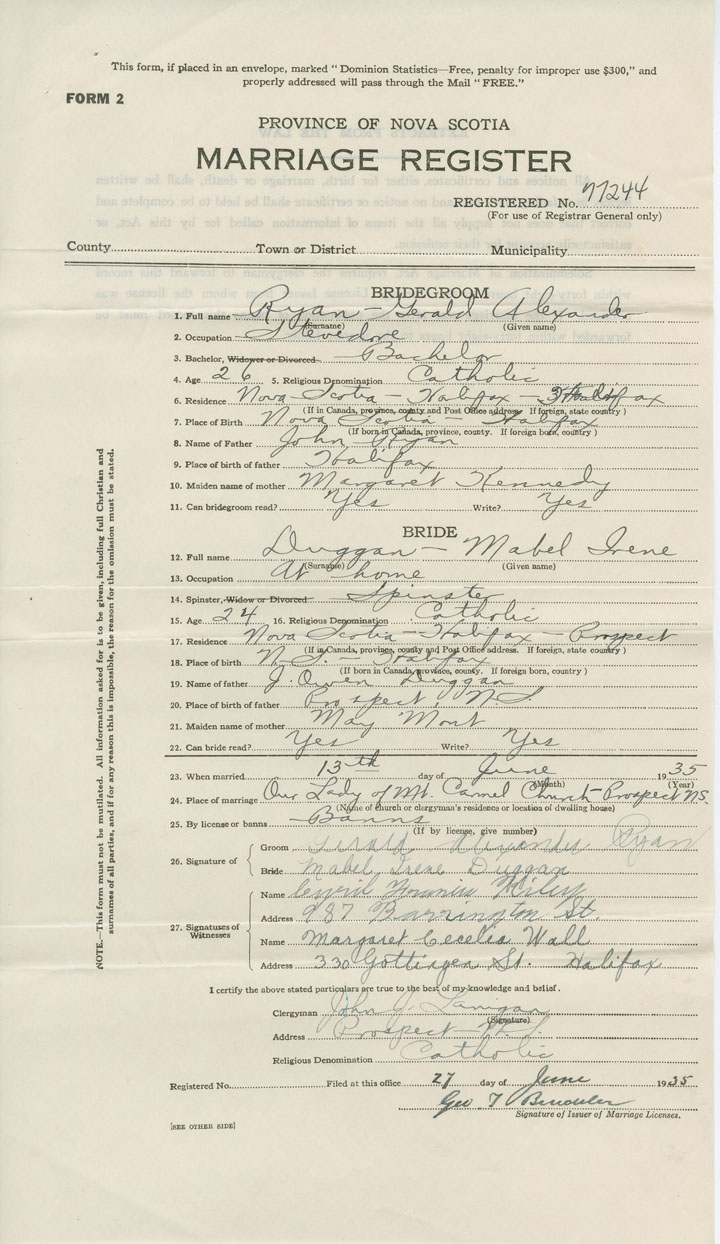 This form, if placed in an envelope, marked "Dominion Statistics—Free, penalty for improper use $300," and
properly addressed will pass through the Mail "FREE."
FORM 2
PROVINCE OF NOVA SCOTIA
MARRIAGE REGISTER
REGISTERED No. 77244
(For use of Registrar General only)
County Town or District Municipality
BRIDEGROOM
1. Full name Ryan - Gerald Alexander
(Surname) (Given name)
2. Occupation Stevedore
3. Bachelor, Widower or Divorced Bachelor
4. Age 26 5. Religious Denomination Catholic
6. Residence Nova Scotia - Halifax - Halifax
(If in Canada, province, county and Post Office address. If foreign, state country)
7. Place of Birth Nova Scotia - Halifax
(If born in Canada, province, county. If foreign born, country)
8. Name of Father John Ryan
9. Place of birth of father Halifax
10. Maiden name of mother Margaret Kennedy
11. Can bridegroom read? Yes Write? Yes
BRIDE
12. Full name Duggan - Mabel Irene
(Surname) (Given name)
13. Occupation At home
14. Spinster, Widow or Divorced Spinster
15. Age 24 16. Religious Denomination Catholic
17. Residence Nova Scotia - Halifax - Prospect
(If in Canada, province, county and Post Office address. If foreign, state country)
18. Place of birth N.S. - Halifax
(If born in Canada, province, county. If foreign born, country)
19. Name of father J. Owen Duggan
20. Place of birth of father Prospect, N.S.
21. Maiden name of mother May Mont
22. Can bride read? Yes Write? Yes
23. When married 13th day of June 1935
(Month) (Year)
24. Place of marriage Our Lady of Mt. Carmel Church - Prospect N.S.
(Name of church or clergyman's residence or location of dwelling house)
25. By license or banns Banns
(If by license, give number)
26. Signature of Groom Gerald Alexander Ryan
Bride Mabel Irene Duggan
27. Signatures of Witnesses
Name
Address 987 Barrington St.
Name Margaret Cecelia Wall
Address 330 Gottingen St. Halifax
I certify the above stated particulars are true to the best of my knowledge and belief.
Clergyman John J. Lanigan
(Signature)
Address Prospect N.S.
Religious Denomination Catholic
Registered No. Filed at this office 27 day of June 1935
Geo T
Signature of Issuer of Marriage Licenses.
[SEE OTHER SIDE]
NOTE.—This form must not be mutilated. All information asked for is to be given, including full Christian and
surnames of all parties, and if for any reason this is impossible, the reason for the omission must be stated.